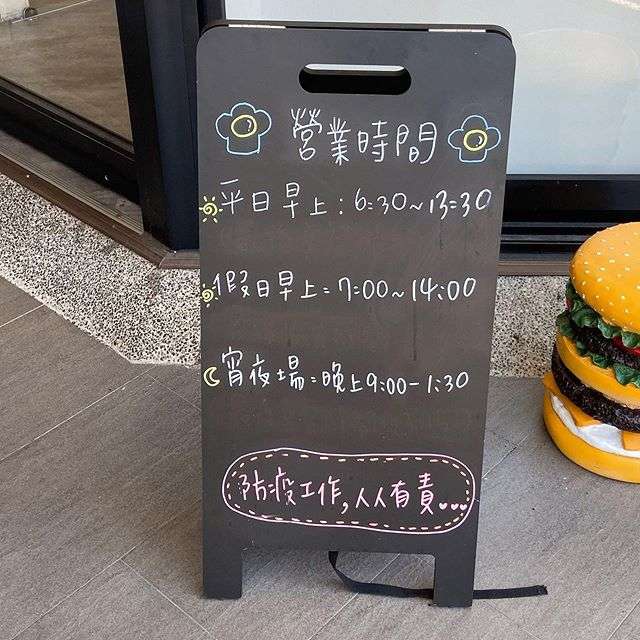 營業時間
平日早上:6:30~13:30
假日早上:7:00~14:00
宵夜場:晚上9:00-1:30
防疫工作,人人有責...